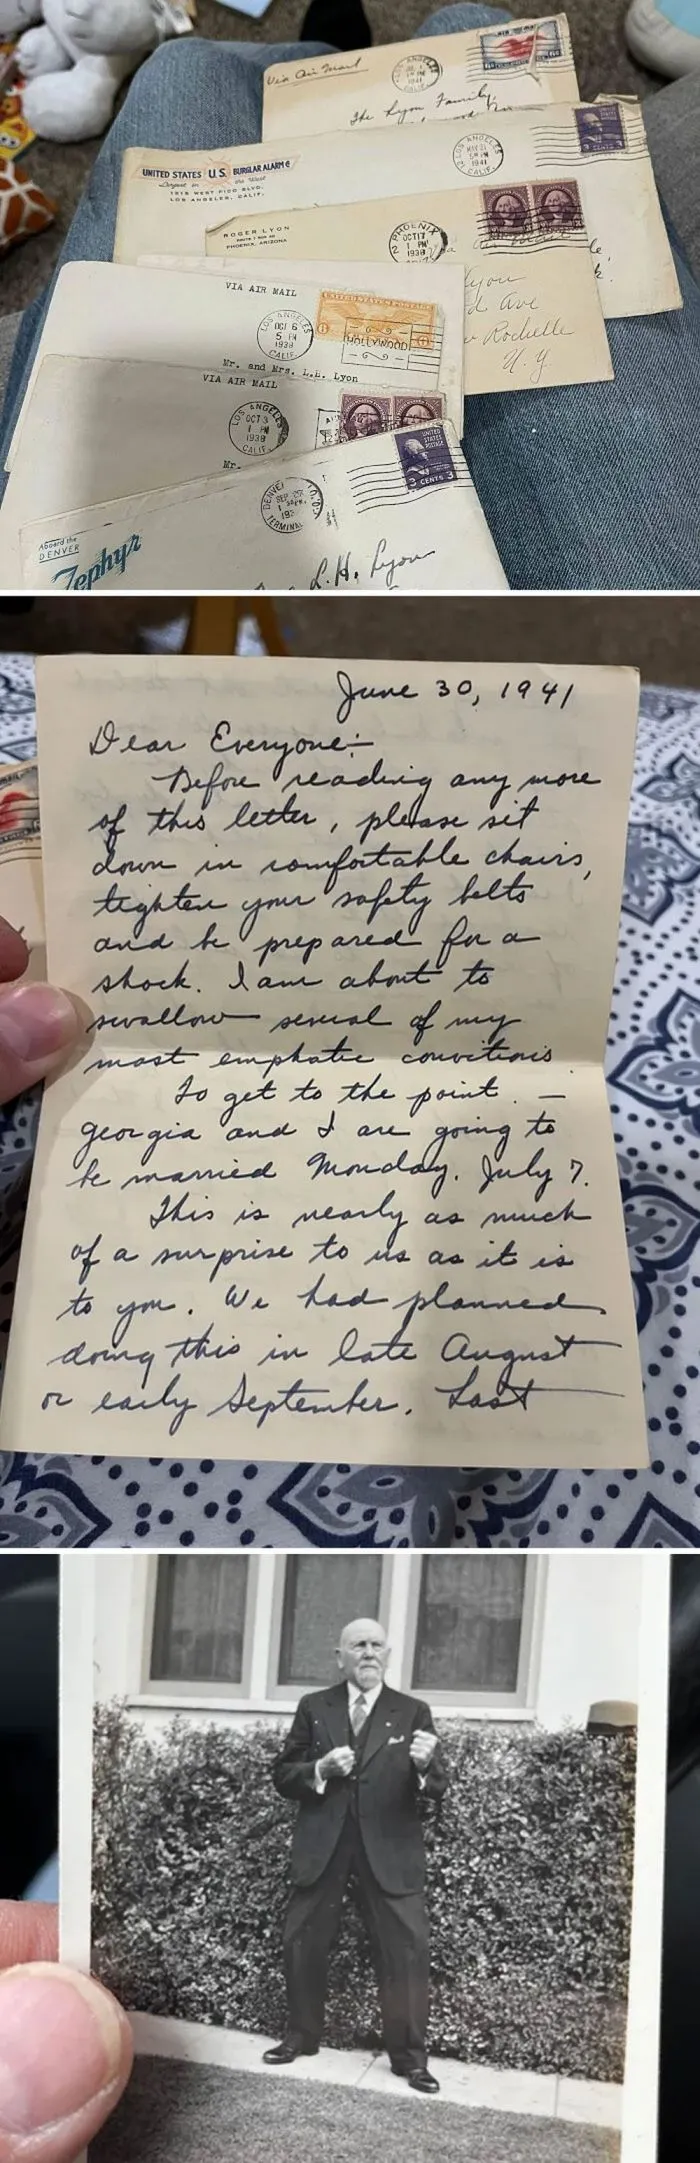 Via Air Mail
LOS ANGELES
1941
CALIF.
AIR MAIL
6¢
The Lyon Family,
UNITED STATES U.S. BURGLAR ALARM Co
Largest in the West
1919 WEST PICO BLVD.
LOS ANGELES, CALIF.
LOS ANGELES
MAY 21
5 PM
1941
CALIF.
3 CENTS 3
ROGER LYON
PHOENIX, ARIZONA
PHOENIX
OCT 17
1 PM
1938
Lyon
Ave
Rochelle
N.Y.
VIA AIR MAIL
UNITED STATES POSTAGE
6 6
LOS ANGELES
OCT 6
5 PM
1938
CALIF.
HOLLYWOOD
Mr. and Mrs. L.H. Lyon
VIA AIR MAIL
LOS ANGELES
OCT 3
1 PM
1938
CALIF.
Mr.
UNITED
STATES
POSTAGE
3 CENTS 3
DENVER
SEP 29
TERMINAL
Aboard the
DENVER
Zephyr
L.H. Lyon
June 30, 1941
Dear Everyone:—
Before reading any more
of this letter, please sit
down in comfortable chairs,
tighten your safety belts
and be prepared for a
shock. I am about to
swallow several of my
most emphatic convictions
To get to the point. —
Georgia and I are going to
be married Monday. July 7.
This is nearly as much
of a surprise to us as it is
to you. We had planned
doing this in late August
or early September. Last